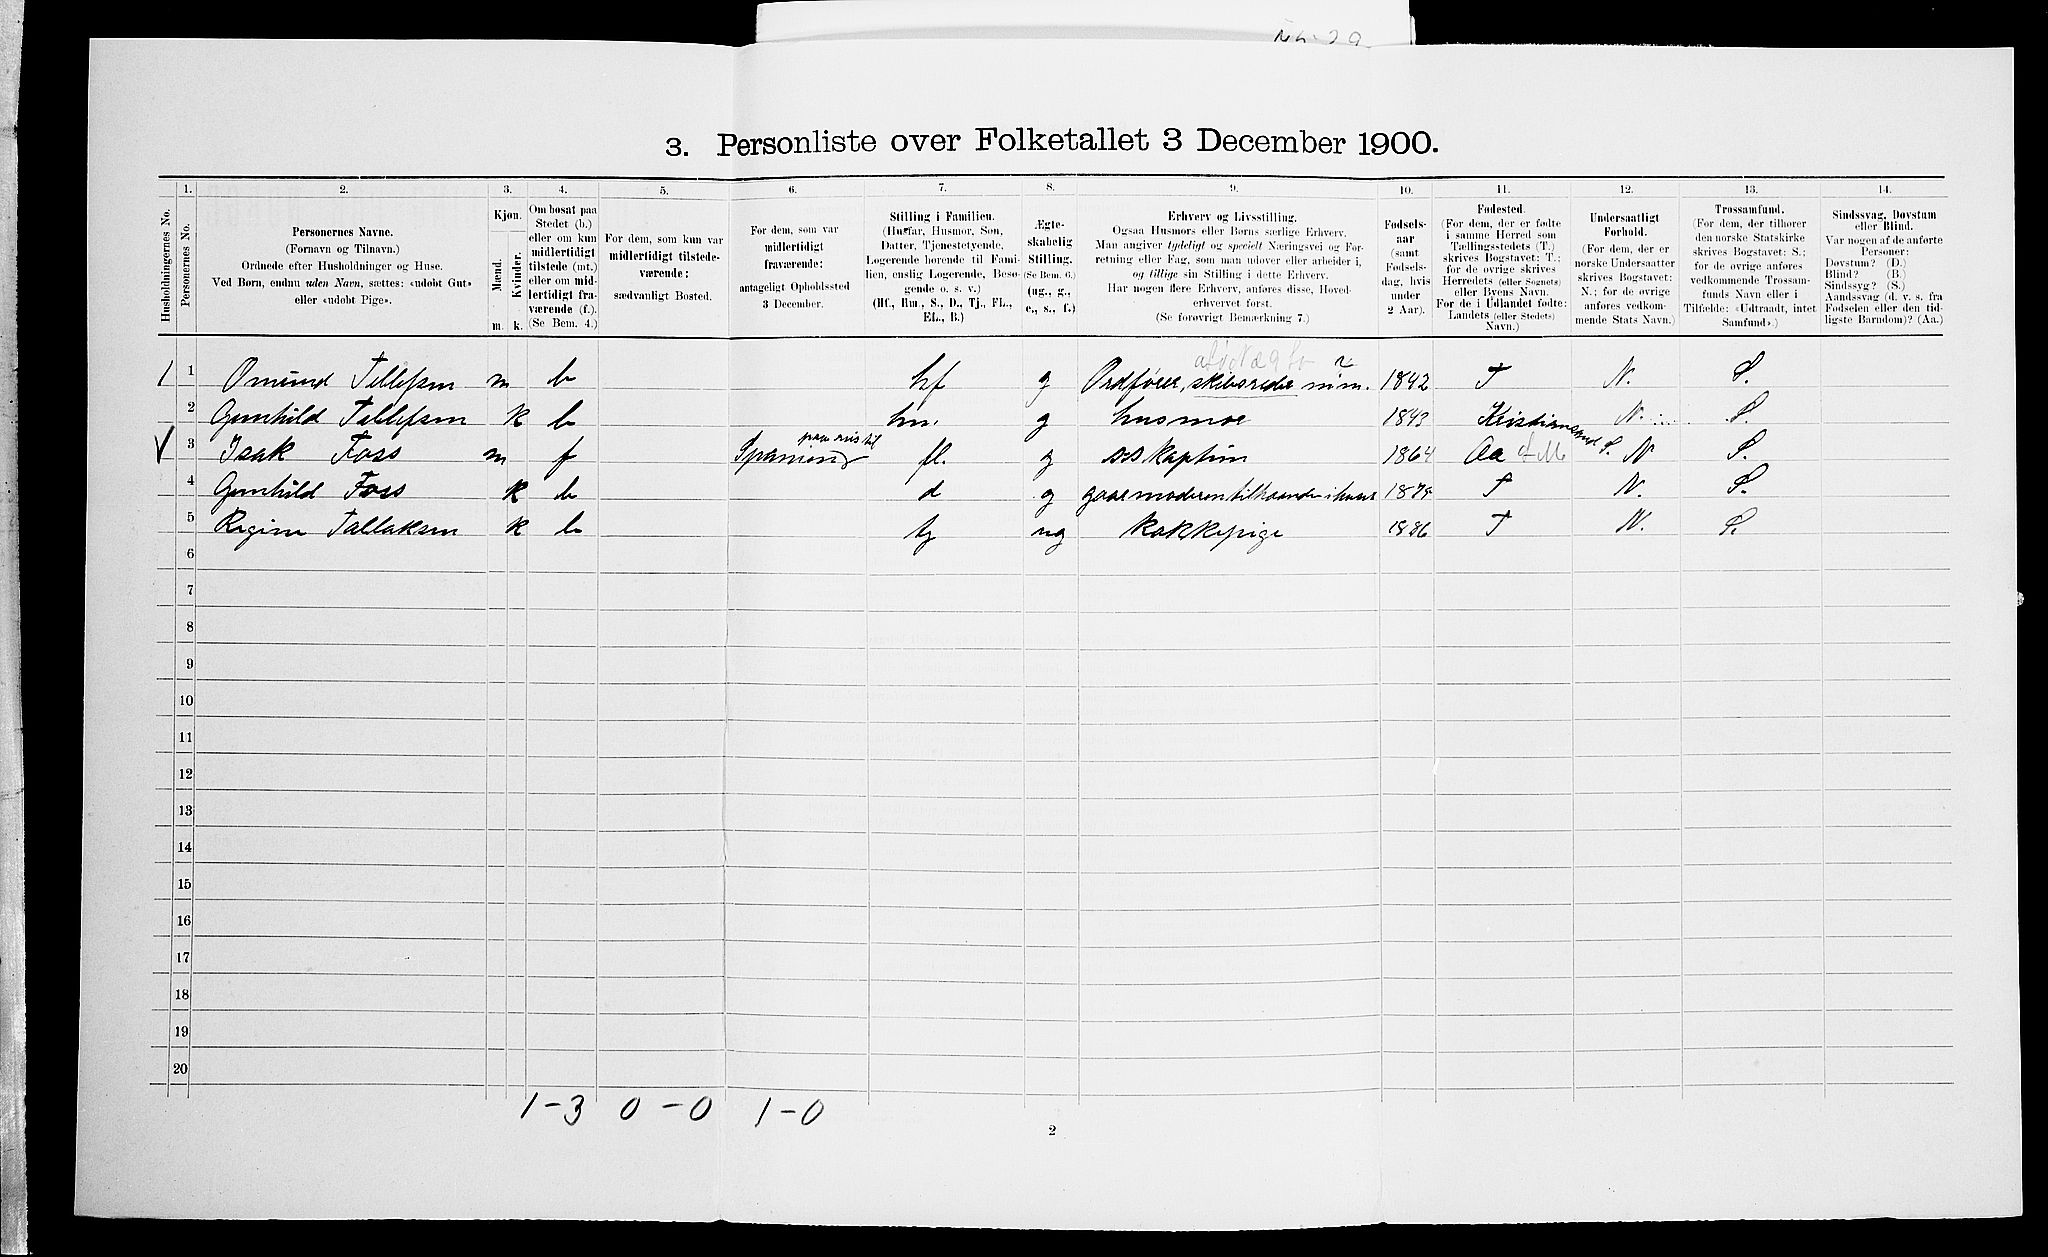 3. Personliste over Folketallet 3 December 1900.
1. 2. 3. 4. 5. 6. 7. 8. 9. 10. 11. 12. 13. 14.
Husholdningernes No.
Personernes No.
Personernes Navne.
(Fornavn og Tilnavn.)
Ordnede efter Husholdninger og Huse.
Ved Børn, endnu uden Navn, sættes: «udøbt Gut»
eller «udøbt Pige».
Kjøn.
Mænd.
Kvinder.
m. k.
Om bosat paa
Stedet (b.)
eller om kun
midlertidigt
tilstede (mt.)
eller om mid-
lertidigt fra-
værende (f.).
(Se Bem. 4.)
For dem, som kun var
midlertidigt tilstede-
værende:
sædvanligt Bosted.
For dem, som var
midlertidigt
fraværende:
antageligt Opholdssted
3 December.
Stilling i Familien.
(Husfar, Husmor, Søn,
Datter, Tjenestetyende,
Logerende hørende til Fami-
lien, enslig Logerende, Besø-
gende o. s. v.)
(Hf., Hm., S., D., Tj., FL.,
EL., B.)
Ægte-
skabelig
Stilling.
(Se Bem. 6.)
(ug., g.,
e., s., f.)
Erhverv og Livsstilling.
Ogsaa Husmors eller Børns særlige Erhverv.
Man angiver tydeligt og specielt Næringsvei og For-
retning eller Fag, som man udøver eller arbeider i,
og tillige sin Stilling i dette Erhverv.
Har nogen flere Erhverv, anføres disse, Hoved-
erhvervet først.
(Se forøvrigt Bemærkning 7.)
Fødsels-
aar
(samt
Fødsels-
dag, hvis
under
2 Aar).
Fødested.
(For dem, der er fødte
i samme Herred som
Tællingsstedets (T.)
skrives Bogstavet: T.;
for de øvrige skrives
Herredets (eller Sognets)
eller Byens Navn.
For de i Udlandet fødte:
Landets (eller Stedets)
Navn.)
Undersaatligt
Forhold.
(For dem, der er
norske Undersaatter
skrives Bogstavet:
N.; for de øvrige
anføres vedkom-
mende Stats Navn.)
Trossamfund.
(For dem, der tilhører
den norske Statskirke
skrives Bogstavet: S.;
for de øvrige anføres
vedkommende Trossam-
funds Navn eller i
Tilfælde: «Udtraadt, intet
Samfund».)
Sindssvag, Døvstum
eller Blind.
Var nogen af de anførte
Personer:
Døvstum? (D.)
Blind? (B.)
Sindssyg? (S.)
Aandssvag (d. v. s. fra
Fødselen eller den tid-
ligste Barndom)? (Aa.)
1 1 Omund Tellefsen m b hf g Ordfører, skibsreder m.m. 1842 T N. S.
2 Gunhild Tellefsen k b hm. g husmor 1843 Kristianssand S. N. S.
3 Isak Foss m f paa reis til fl. g ss kaptein 1864 Aa N S.
4 Gunhild Foss k b d g gaar moderen tilhaande i huset T N. S.
5 Regine Tallaksen k b tj ug kokkepige 1886 T N. S.
6
7
8
9
10
11
12
13
14
15
16
17
18
19
20
1-3 0-0 1-0
2